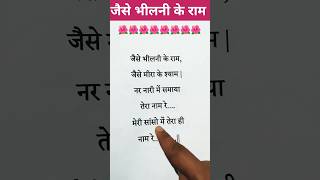 जैसे भीलनी के राम
🌺🌺🌺🌺🌺🌺🌺🌺
जैसे भीलनी के राम,
जैसे मीरा के श्याम |
नर नारी में समाया
तेरा नाम रे....
मेरी सांसो में तेरा ही
नाम रे.......... ||